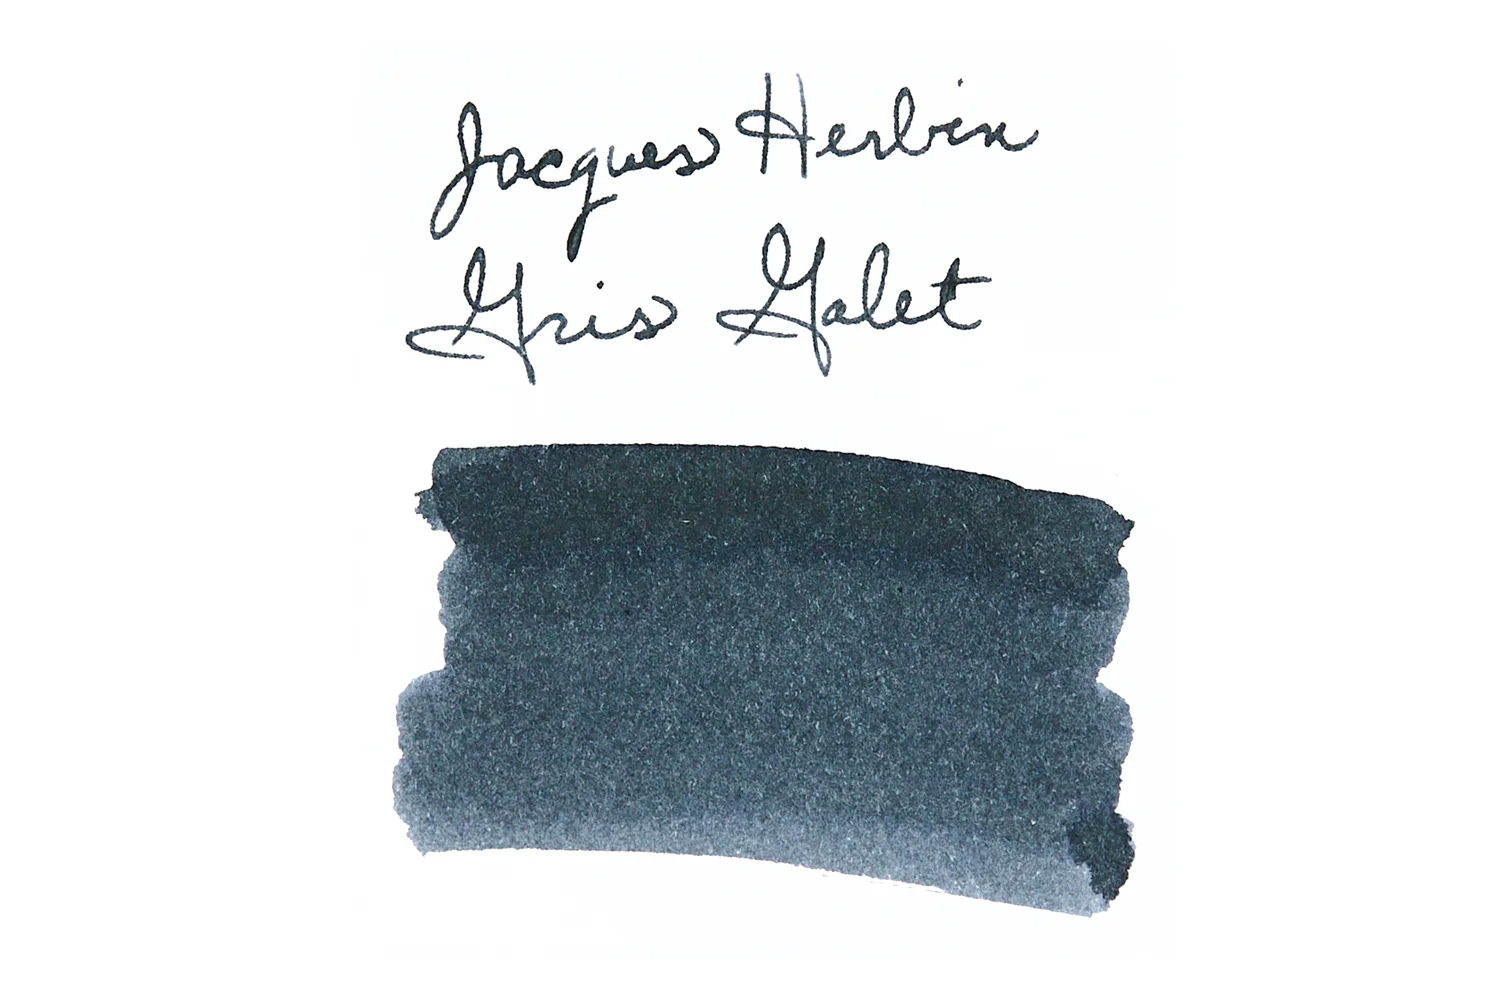 Jacques Herbin
Gris Galet